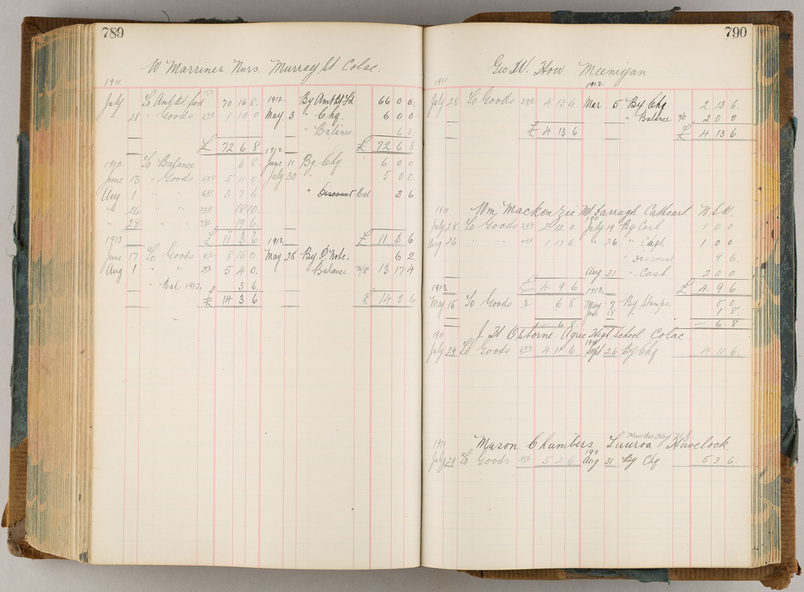 789
W Marriner Nurs. Murray St Colac.
1911
July To Amt Bt fwd 70 16 8. 1912 By Amt Bt Fd 66 0 0
28 " Goods 1 10 0 May 3 " Chq. 6 0 0
" Balance 6 8
£ 72 6 8 £ 72 6 8
1912 To Balance 6 8. 1912 June 11 By Chq 6 0 0
June 13 " Goods 5 11 0. July 30 " 5 0 0
Aug 1 " " 3 7 6 " Discount 3 6
" 26 " " 18 10.
" 28 " " 19 6
1913 £ 11 3 6 1913 £ 11 3 6
June 17 To Goods 8 16 0 May 26 By D Note. 6 2
Aug 1 " " 5 4 0. " Balance 13 17 4
" Bal 1912. 3 6
£ 14 3 6 £ 14 3 6
790
Geo. W. How Meeniyan
1911 1912
July 28 To Goods 4 13 6 Mar 5 By Chq 2 13 6.
" Balance 2 0 0
£ 4 13 6 £ 4 13 6
Wm Mackenzie Mt Darragh Cathcart N.S.W.
1911
July 28 To Goods 2 12 0 July 19 By Cash 1 0 0
Aug 26 " " 1 17 6 " 26 " Cash 1 0 0
" Discount 9 6
Aug 31 " Cash 2 0 0
1912 £ 4 9 6 1912 £ 4 9 6
May 15 To Goods 6 8 May 7 By Stamps 5 0
1 8
6 8 6 8
J H Osborne Agric High School Colac
1911
July 29 To Goods 4 11 6 Sept 26 By Chq 4 11 6.
Mason Chambers Havelock
1911
July 29 To Goods 5 3 6 Aug 31 By Chq 5 3 6.